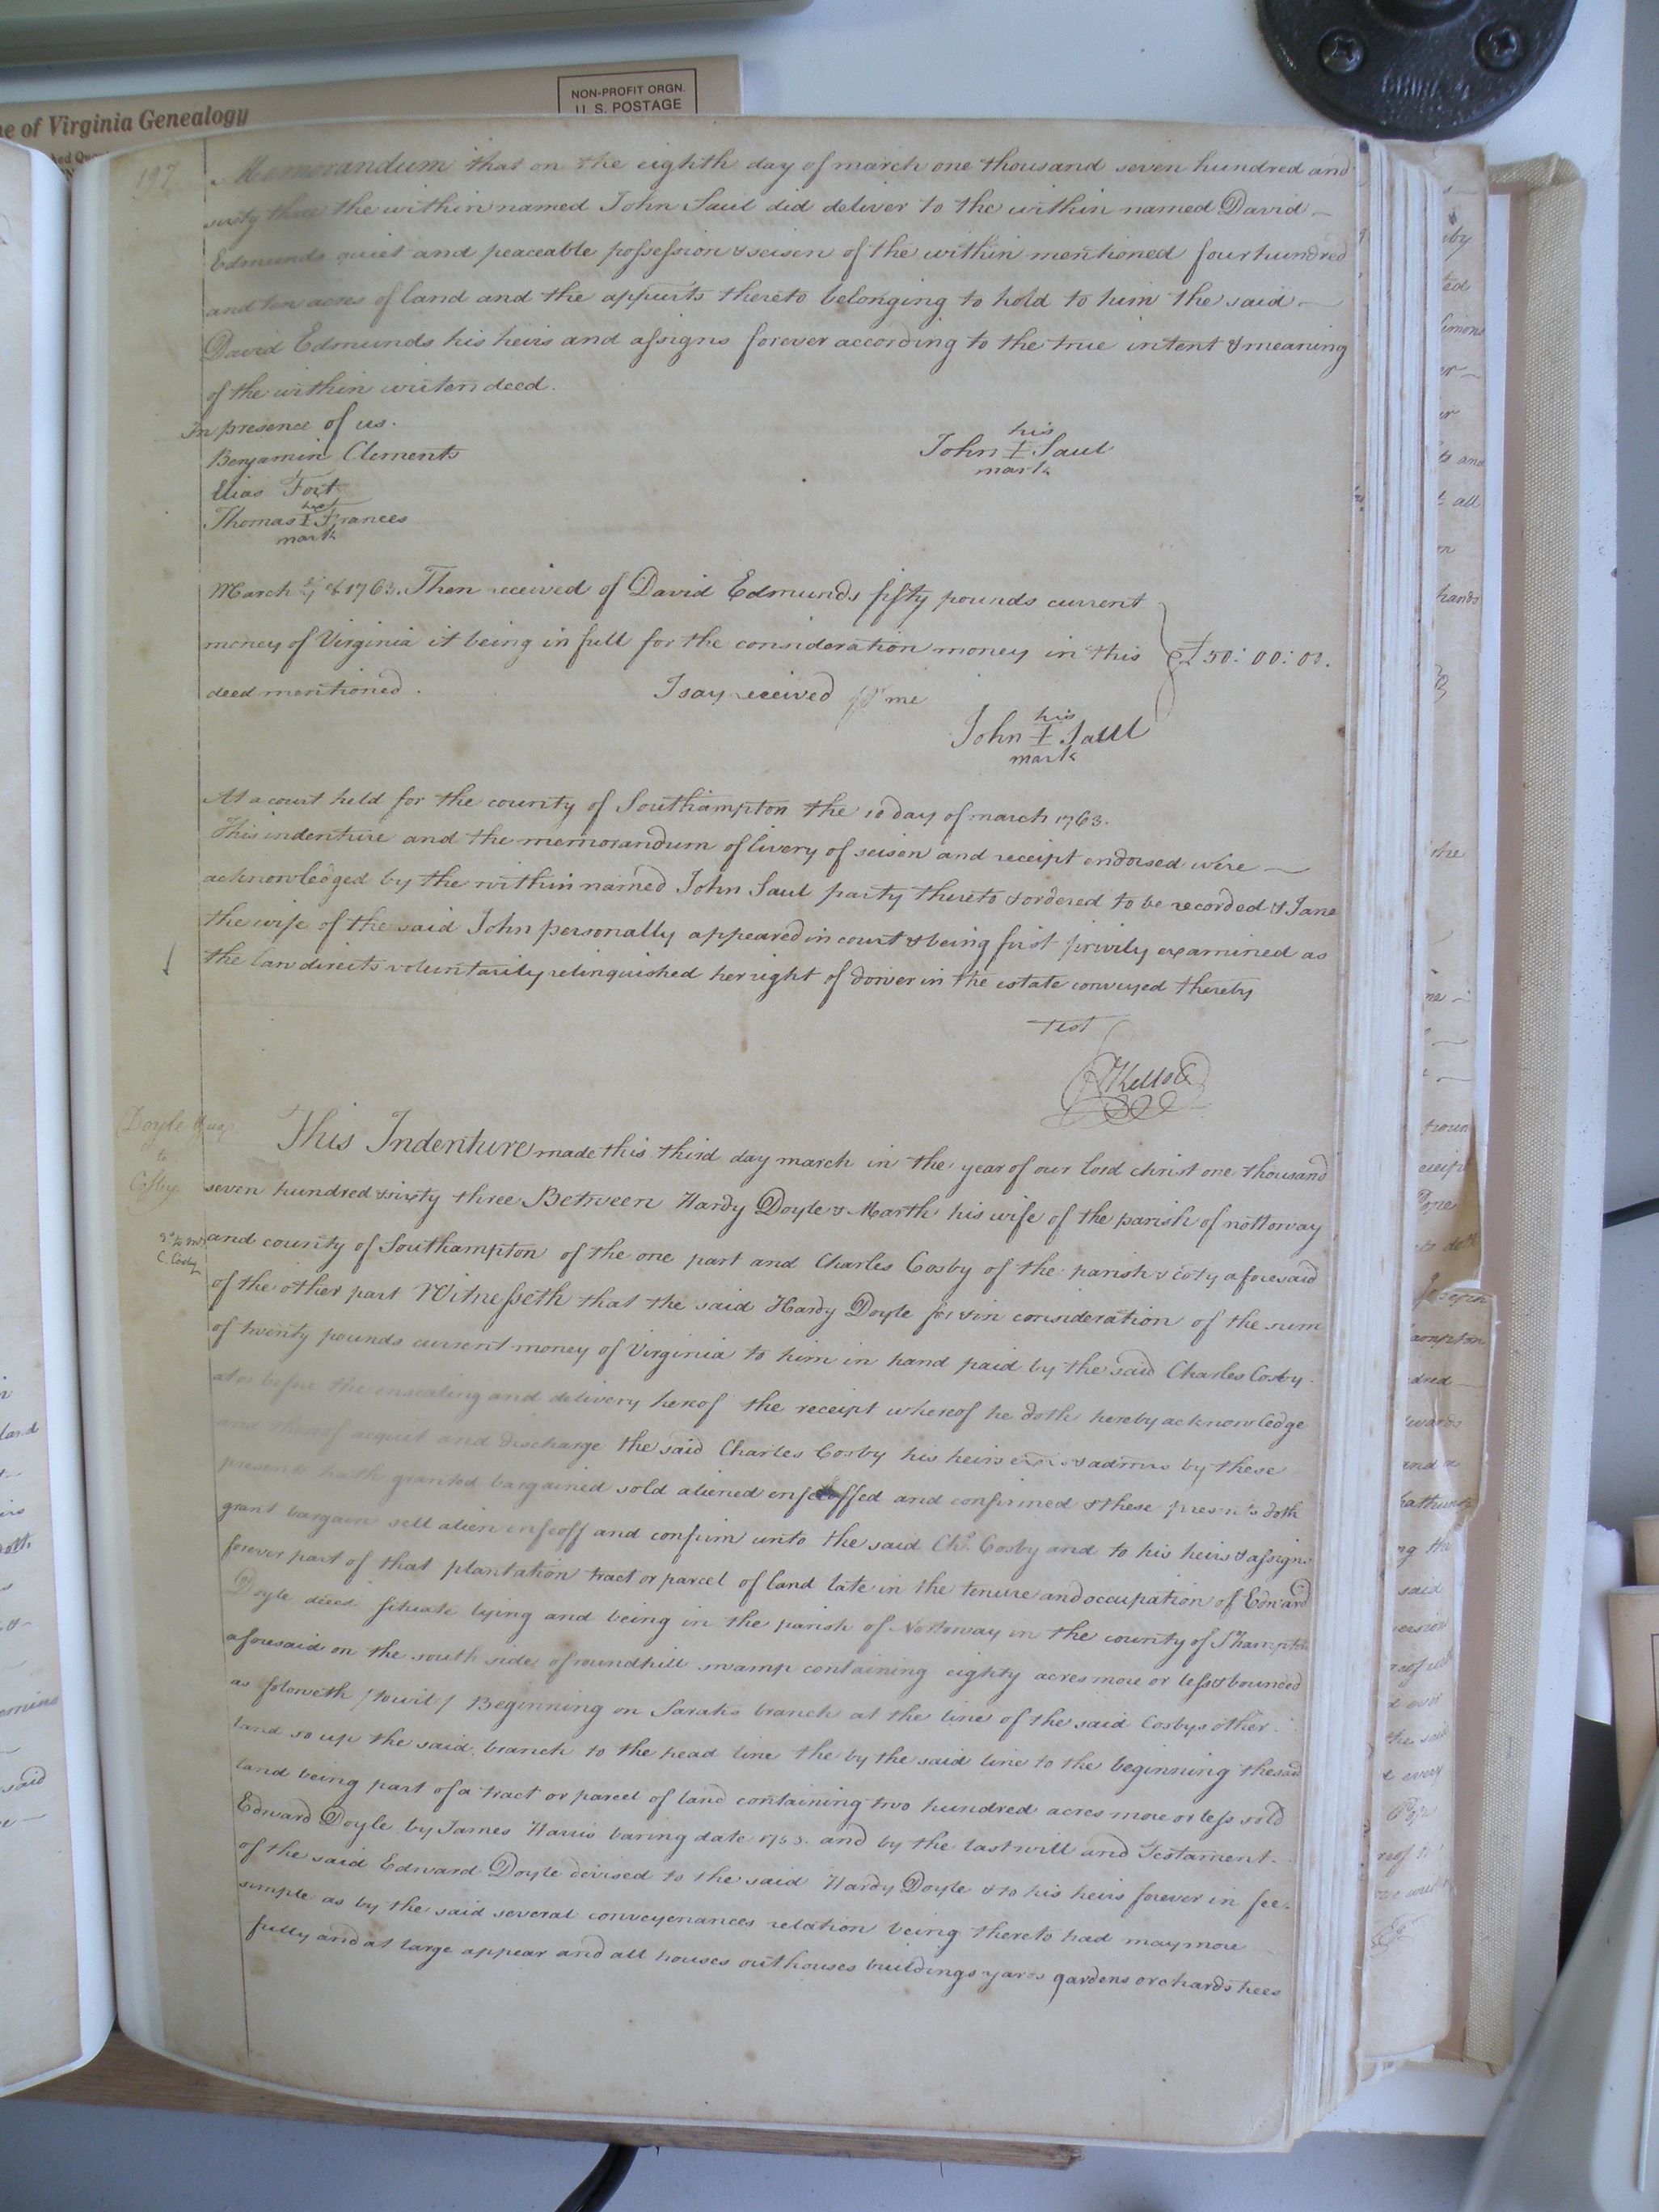 e of Virginia Genealogy
NON-PROFIT ORGN.
U. S. POSTAGE
197
Memorandum that on the eighth day of march one thousand seven hundred and
sixty three the within named John Saul did deliver to the within named David
Edmunds quiet and peaceable possession & seisen of the within mentioned four hundred
and ten acres of land and the appurts thereto belonging to hold to him the said
David Edmunds his heirs and assigns forever according to the true intent & meaning
of the within writen deed.
In presence of us.
Benjamin Clements
Elias Fort
his
Thomas I Frances
mark
his
John I Saul
mark
March 1763. Then received of David Edmunds fifty pounds current
money of Virginia it being in full for the consideration money in this
deed mentioned. I say received pr me
£50:00:00.
his
John I Saul
mark
At a court held for the county of Southampton the 10 day of march 1763.
This indenture and the memorandum of livery of seisen and receipt endorsed were
acknowledged by the within named John Saul party thereto & ordered to be recorded & Jane
the wife of the said John personally appeared in court & being first privily examined as
the law directs voluntarily relinquished her right of dower in the estate conveyed thereby
Test
Doyle &ux
to
Cosby
C. Cosby
This Indenture made this third day march in the year of our lord christ one thousand
seven hundred & sixty three Between Hardy Doyle & Marth his wife of the parish of nottoway
and county of Southampton of the one part and Charles Cosby of the parish & coty aforesaid
of the other part Witnesseth that the said Hardy Doyle for & in consideration of the sum
of twenty pounds current money of Virginia to him in hand paid by the said Charles Cosby
at or before the ensealing and delivery hereof the receipt whereof he doth hereby acknowledge
and thereof acquit and discharge the said Charles Cosby his heirs exrs & admrs by these
presents hath granted bargained sold aliened enfeoffed and confirmed & these presents doth
grant bargain sell alien enfeoff and confirm unto the said Chs. Cosby and to his heirs & assigns
forever part of that plantation tract or parcel of land late in the tenure and occupation of Edward
Doyle deced situate lying and being in the parish of Nottoway in the county of Shampton
aforesaid on the south side of roundhill swamp containing eighty acres more or less & bounded
as foloweth /towit/ Beginning on Sarahs branch at the line of the said Cosbys other
land so up the said branch to the head line the by the said line to the beginning the said
land being part of a tract or parcel of land containing two hundred acres more or less sold
Edward Doyle by James Harris baring date 1753. and by the last will and Testament.
of the said Edward Doyle devised to the said Hardy Doyle & to his heirs forever in fee
simple as by the said several conveyenances relation being thereto had may more
fully and at large appear and all houses outhouses buildings yards gardens orchards trees